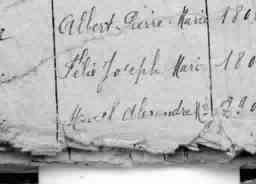 Albert Pierre Marie 180
Félix Joseph Marie 180
Marcel Alexandre